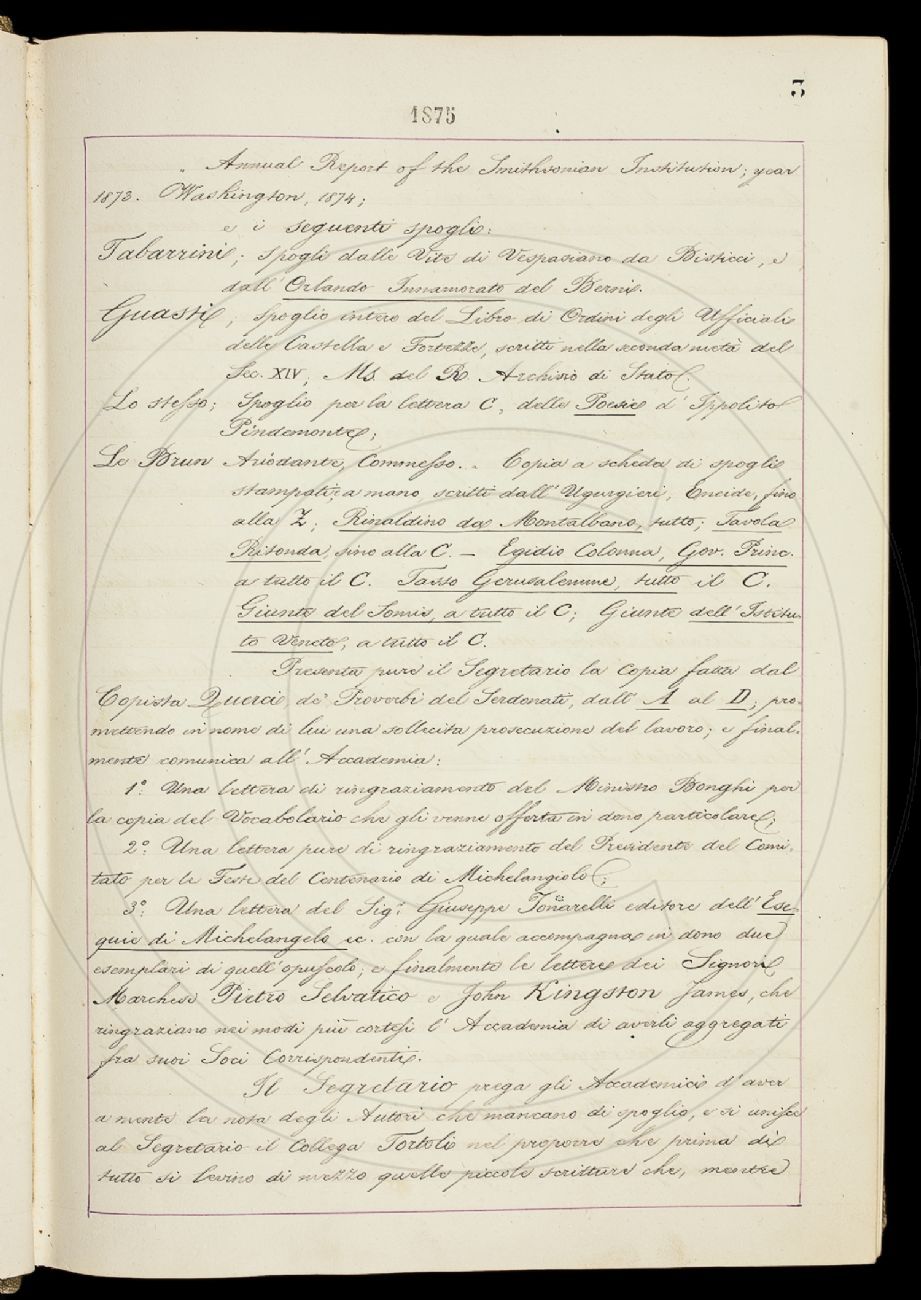 3
1875
„ Annual Report of the Smithsonian Institution; year
1873. Washington, 1874;
e i seguenti spogli:
Tabarrini; spogli dalle Vite di Vespasiano da Bisticci, e
dall' Orlando Innamorato del Berni.
Guasti, Spoglio intero del Libro di Ordini degli Ufficiali
delle Castella e Fortezze, scritti nella seconda metà del
Sec. XIV; Ms. del R. Archivio di Stato.
Lo stesso; Spoglio per la lettera C, delle Poesie d' Ippolito
Pindemonte;
Le Brun Ariodante, Commesso.. Copia a scheda di spogli
stampati; a mano, scritti dall' Ugurgieri, Eneide, fino
alla Z; Rinaldino da Montalbano, tutto; Tavola
Ritonda, sino alla C. — Egidio Colonna, Gov. Princ.
a tutto il C. Tasso Gerusalemme, tutto il C.
Giunte del Somis, a tutto il C; Giunte dell' Istitu-
to Veneto; a tutto il C.
Presenta pure il Segretario la copia fatta dal
Copista Querci, de' Proverbi del Serdonati, dall' A al D; pro-
mettendo in nome di lui una sollecita prosecuzione del lavoro; e final-
mente comunica all' Accademia:
1.° Una lettera di ringraziamento del Ministro Bonghi per
la copia del Vocabolario che gli venne offerta in dono particolare;
2.° Una lettera pure di ringraziamento del Presidente del Comi-
tato per le Feste del Centenario di Michelangiolo;
3.° Una lettera del Sig.r Giuseppe editore dell' Ese-
quie di Michelangelo ec. con la quale accompagna in dono due
esemplari di quell' opuscolo; e finalmente le lettere dei Signori
Marchese Pietro Selvatico e John Kingston James, che
ringraziano nei modi più cortesi l' Accademia di averli aggregati
fra suoi Soci Corrispondenti.
Il Segretario prega gli Accademici d' aver
a mente la nota degli Autori che mancano di spoglio, e si unisce
al Segretario il Collega Tortoli nel proporre che prima di
tutto si levino di mezzo quelle piccole scritture che, mentre